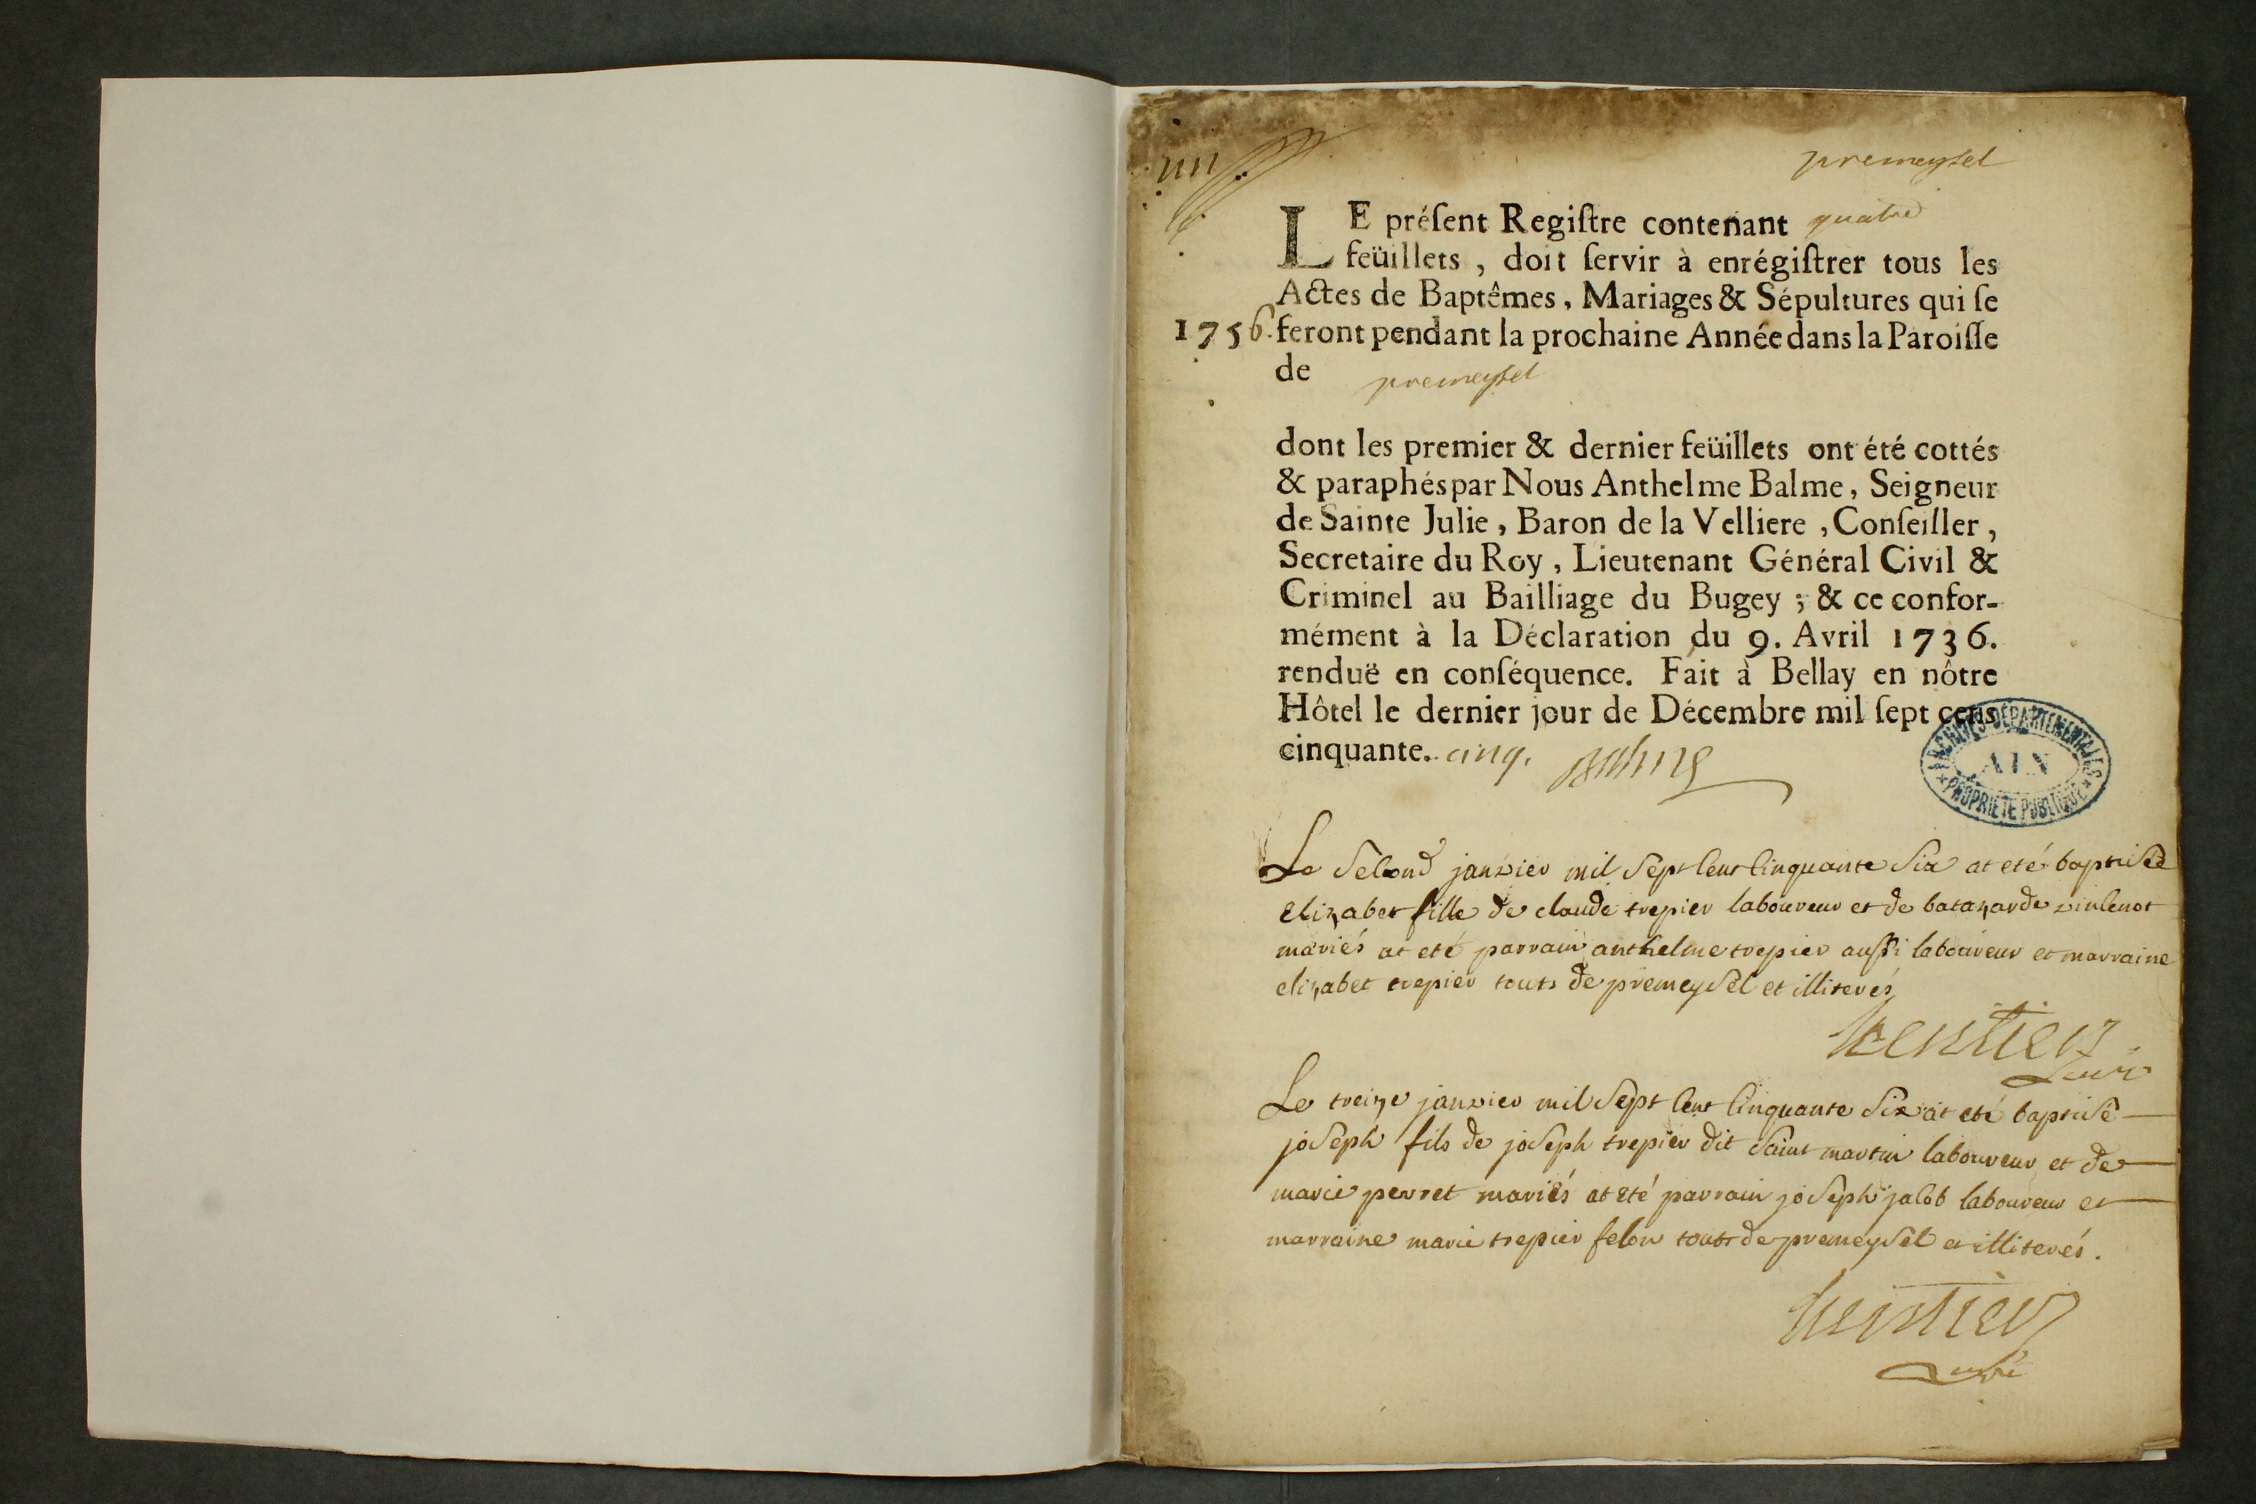 premeysel
LE préſent Regiſtre contenant quatre
feüillets, doit ſervir à enrégiſtrer tous les
Actes de Baptêmes, Mariages & Sépultures qui ſe
1756. feront pendant la prochaine Année dans la Paroiſſe
de premeysel
dont les premier & dernier feüillets ont été cottés
& paraphés par Nous Anthelme Balme, Seigneur
de Sainte Julie, Baron de la Velliere, Conſeiller,
Secretaire du Roy, Lieutenant Général Civil &
Criminel au Bailliage du Bugey; & ce confor-
mément à la Déclaration du 9. Avril 1736.
renduë en conſéquence. Fait à Bellay en nôtre
Hôtel le dernier jour de Décembre mil ſept cens
cinquante. cinq. Balme
ARCHIVES DÉPARTEMENTALES
AIN
PROPRIÉTÉ PUBLIQUE
Le second janvier mil sept cent cinquante six at eté baptisée
elizabet fille de claude trepier laboureur et de batazarde vincenot
mariés at eté parrain anthelme trepier aussi laboureur et marraine
elizabet trepier touts de premeysel et illiterés
curé
Le treize janvier mil sept cent cinquante six at eté baptisé
joseph fils de joseph trepier dit saint martin laboureur et de
marie perret mariés at eté parrain joseph jacob laboureur et
marraine marie trepier felon touts de premeysel et illiterés.
curé